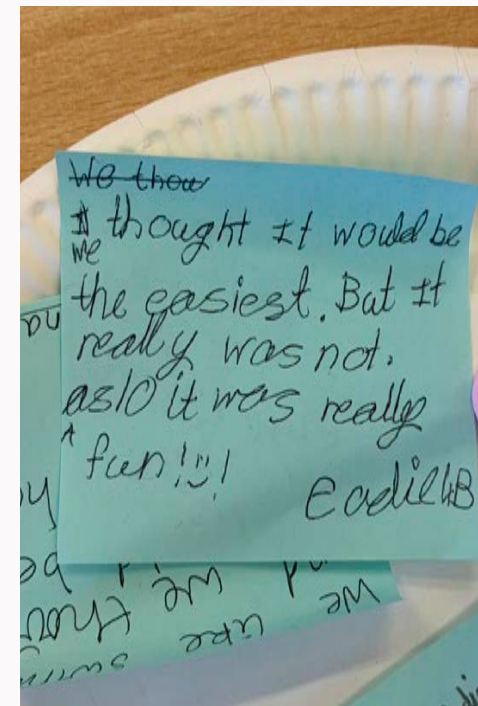 We thou
I thought It would be
we
the easiest. But It
really was not.
aslo it was really
A
fun!!!
Eadie 4B
We
like
swim